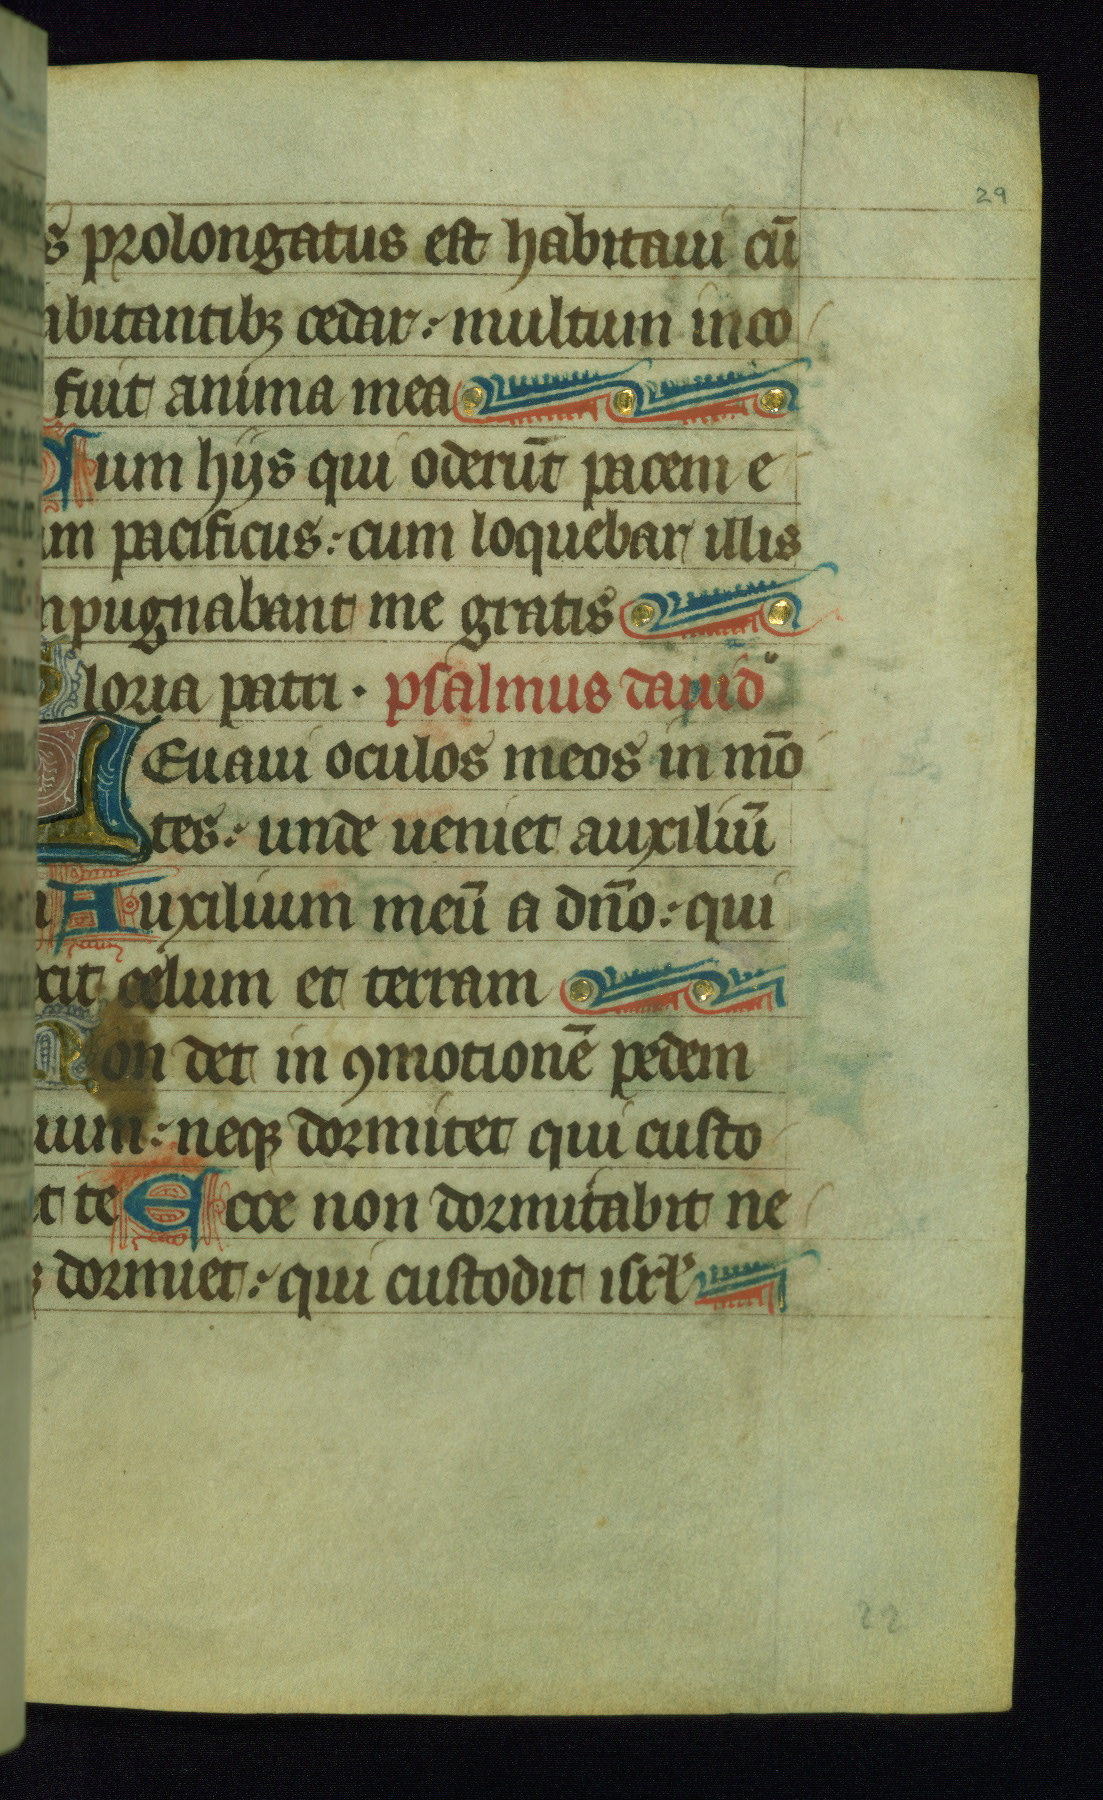 29
s prolongatus est habitaui cū
abitantibꝫ cedar: multum inco
fuit anima mea
Cum hijs qui oderūt pacem e
am pacificus: cum loquebar illis
npugnabant me gratis
Gloria patri · psalmus dauid
LEuaui oculos meos in mō
tes: unde ueniet auxiliū
Auxilium meū a dn̄o: qui
cit celum et terram
Non det in ꝯmotionē pedem
uum: neqꝫ dormitet qui custo
t te Ecce non dormitabit ne
ꝫ dormiet: qui custodit isrl̓
22